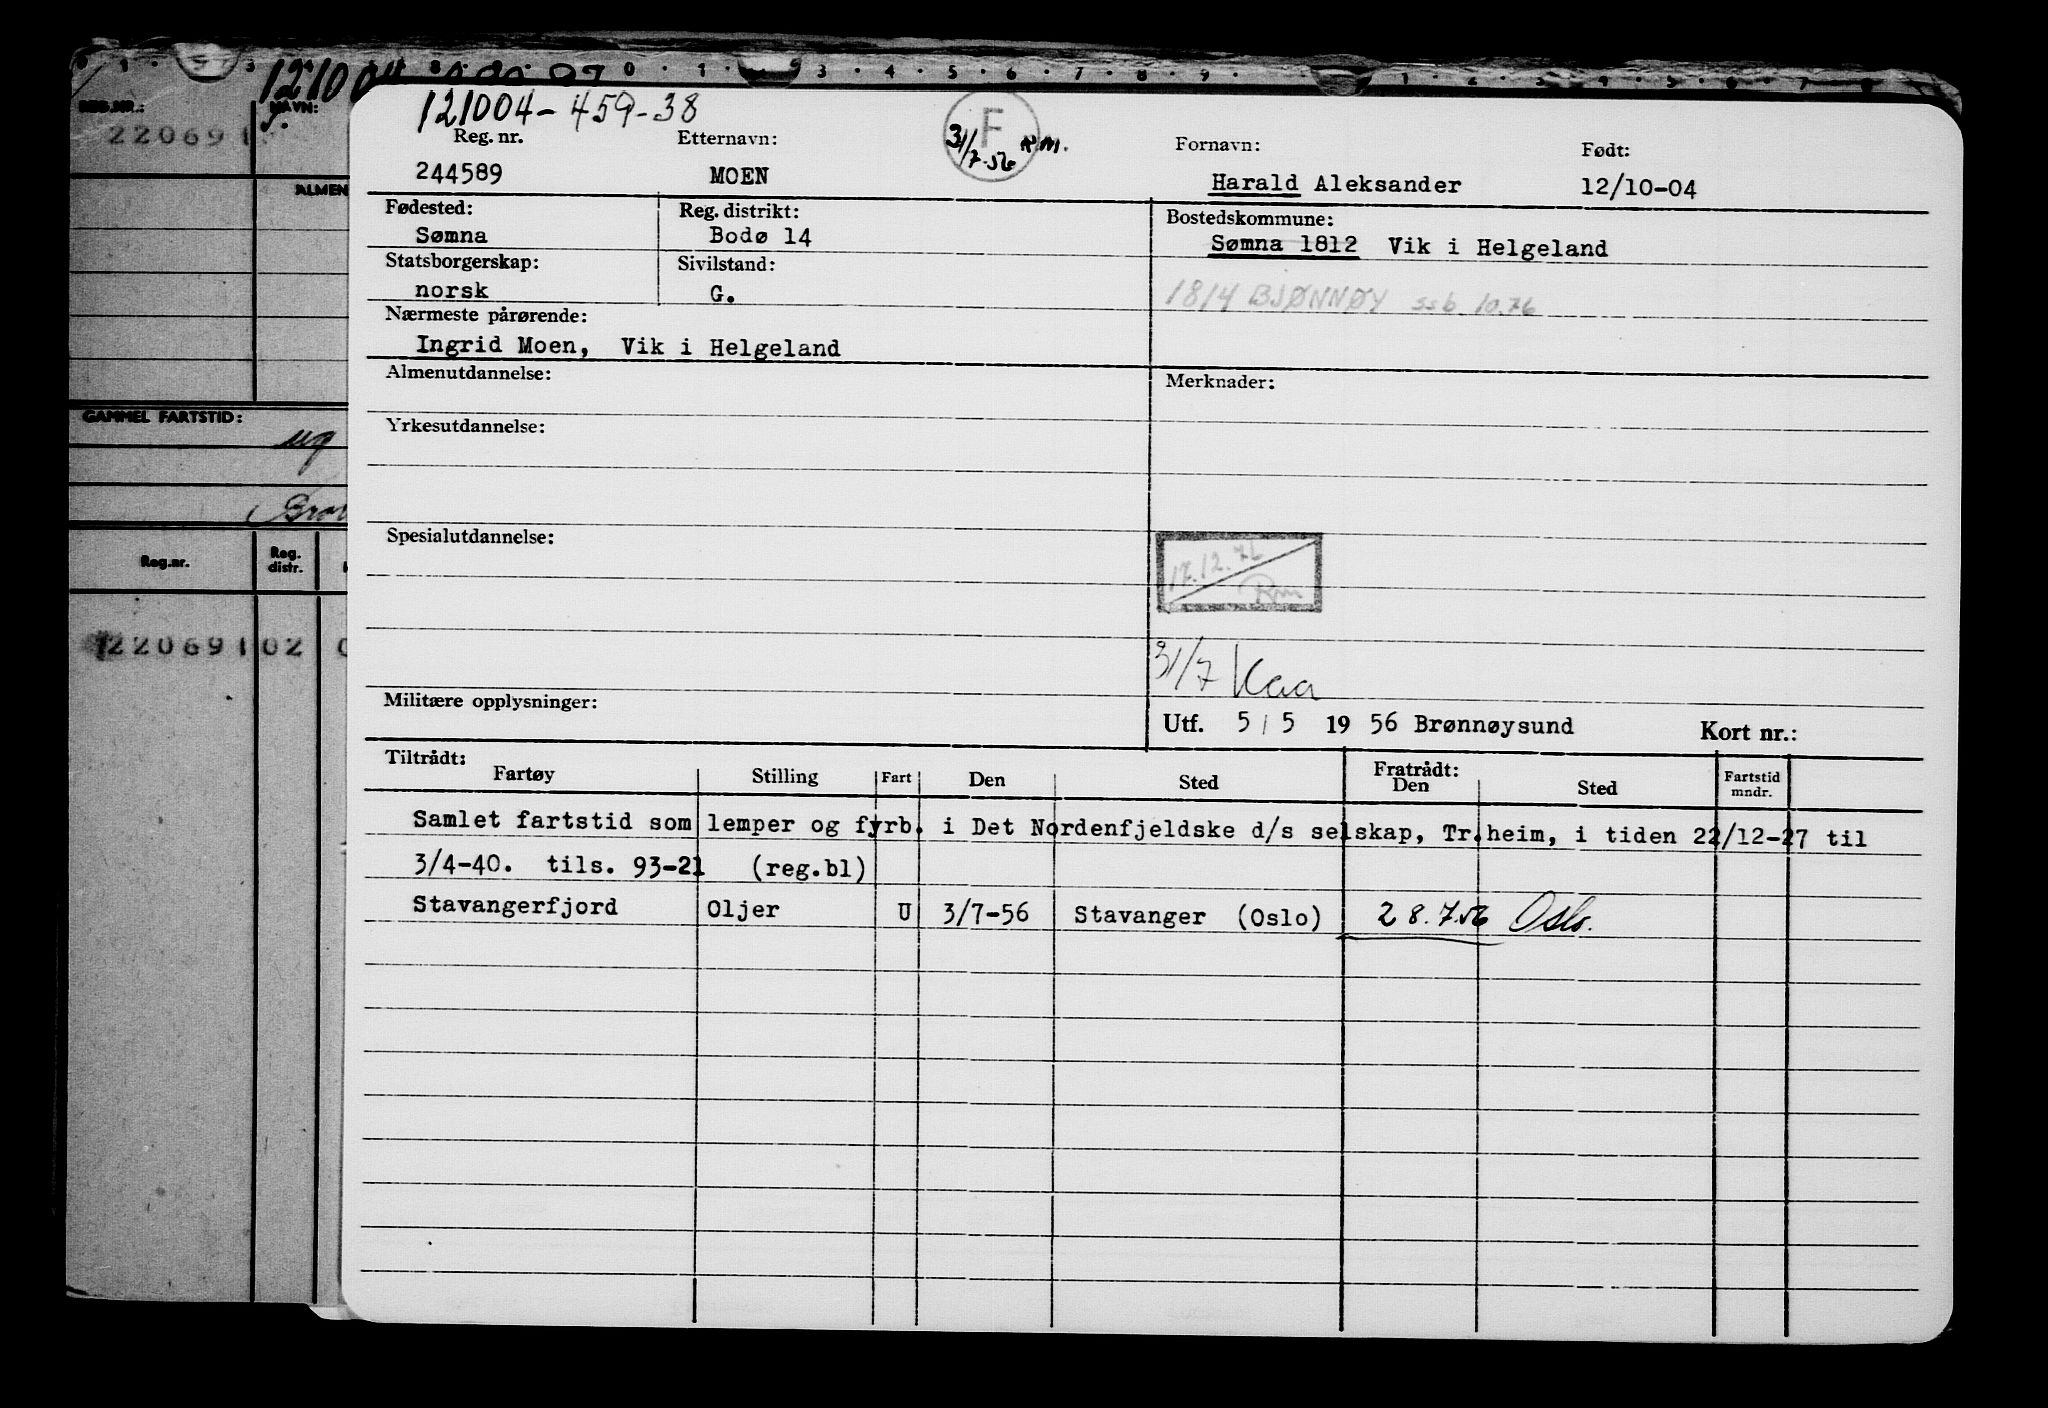 121004
REG.NR.:
NAVN:
220691
ALMEN
GAMMEL FARTSTID:
ug
Reg.nr.
Reg. distr.
220691 02
121004-459-38
Reg. nr.
Etternavn:
F
31/7-56 K.M.
Fornavn:
Født:
244589
MOEN
Harald Aleksander
12/10-04
Fødested:
Reg. distrikt:
Bostedskommune:
Sømna
Bodø 14
Sømna 1812 Vik i Helgeland
Statsborgerskap:
Sivilstand:
norsk
G.
1814 BJØNNØY ssb. 10.76
Nærmeste pårørende:
Ingrid Moen, Vik i Helgeland
Almenutdannelse:
Merknader:
Yrkesutdannelse:
Spesialutdannelse:
17.12.71
31/7 Kaa
Militære opplysninger:
Utf. 5/5 1956 Brønnøysund
Kort nr.:
Tiltrådt:
Fratrådt:
Fartøy
Stilling
Fart
Den
Sted
Den
Sted
Fartstid mndr.
Samlet fartstid som lemper og fyrb. i Det Nordenfjeldske d/s selskap, Tr.heim, i tiden 22/12-27 til
3/4-40. tils. 93-21 (reg.bl)
Stavangerfjord Oljer U 3/7-56 Stavanger (Oslo) 28.7.56 Oslo.